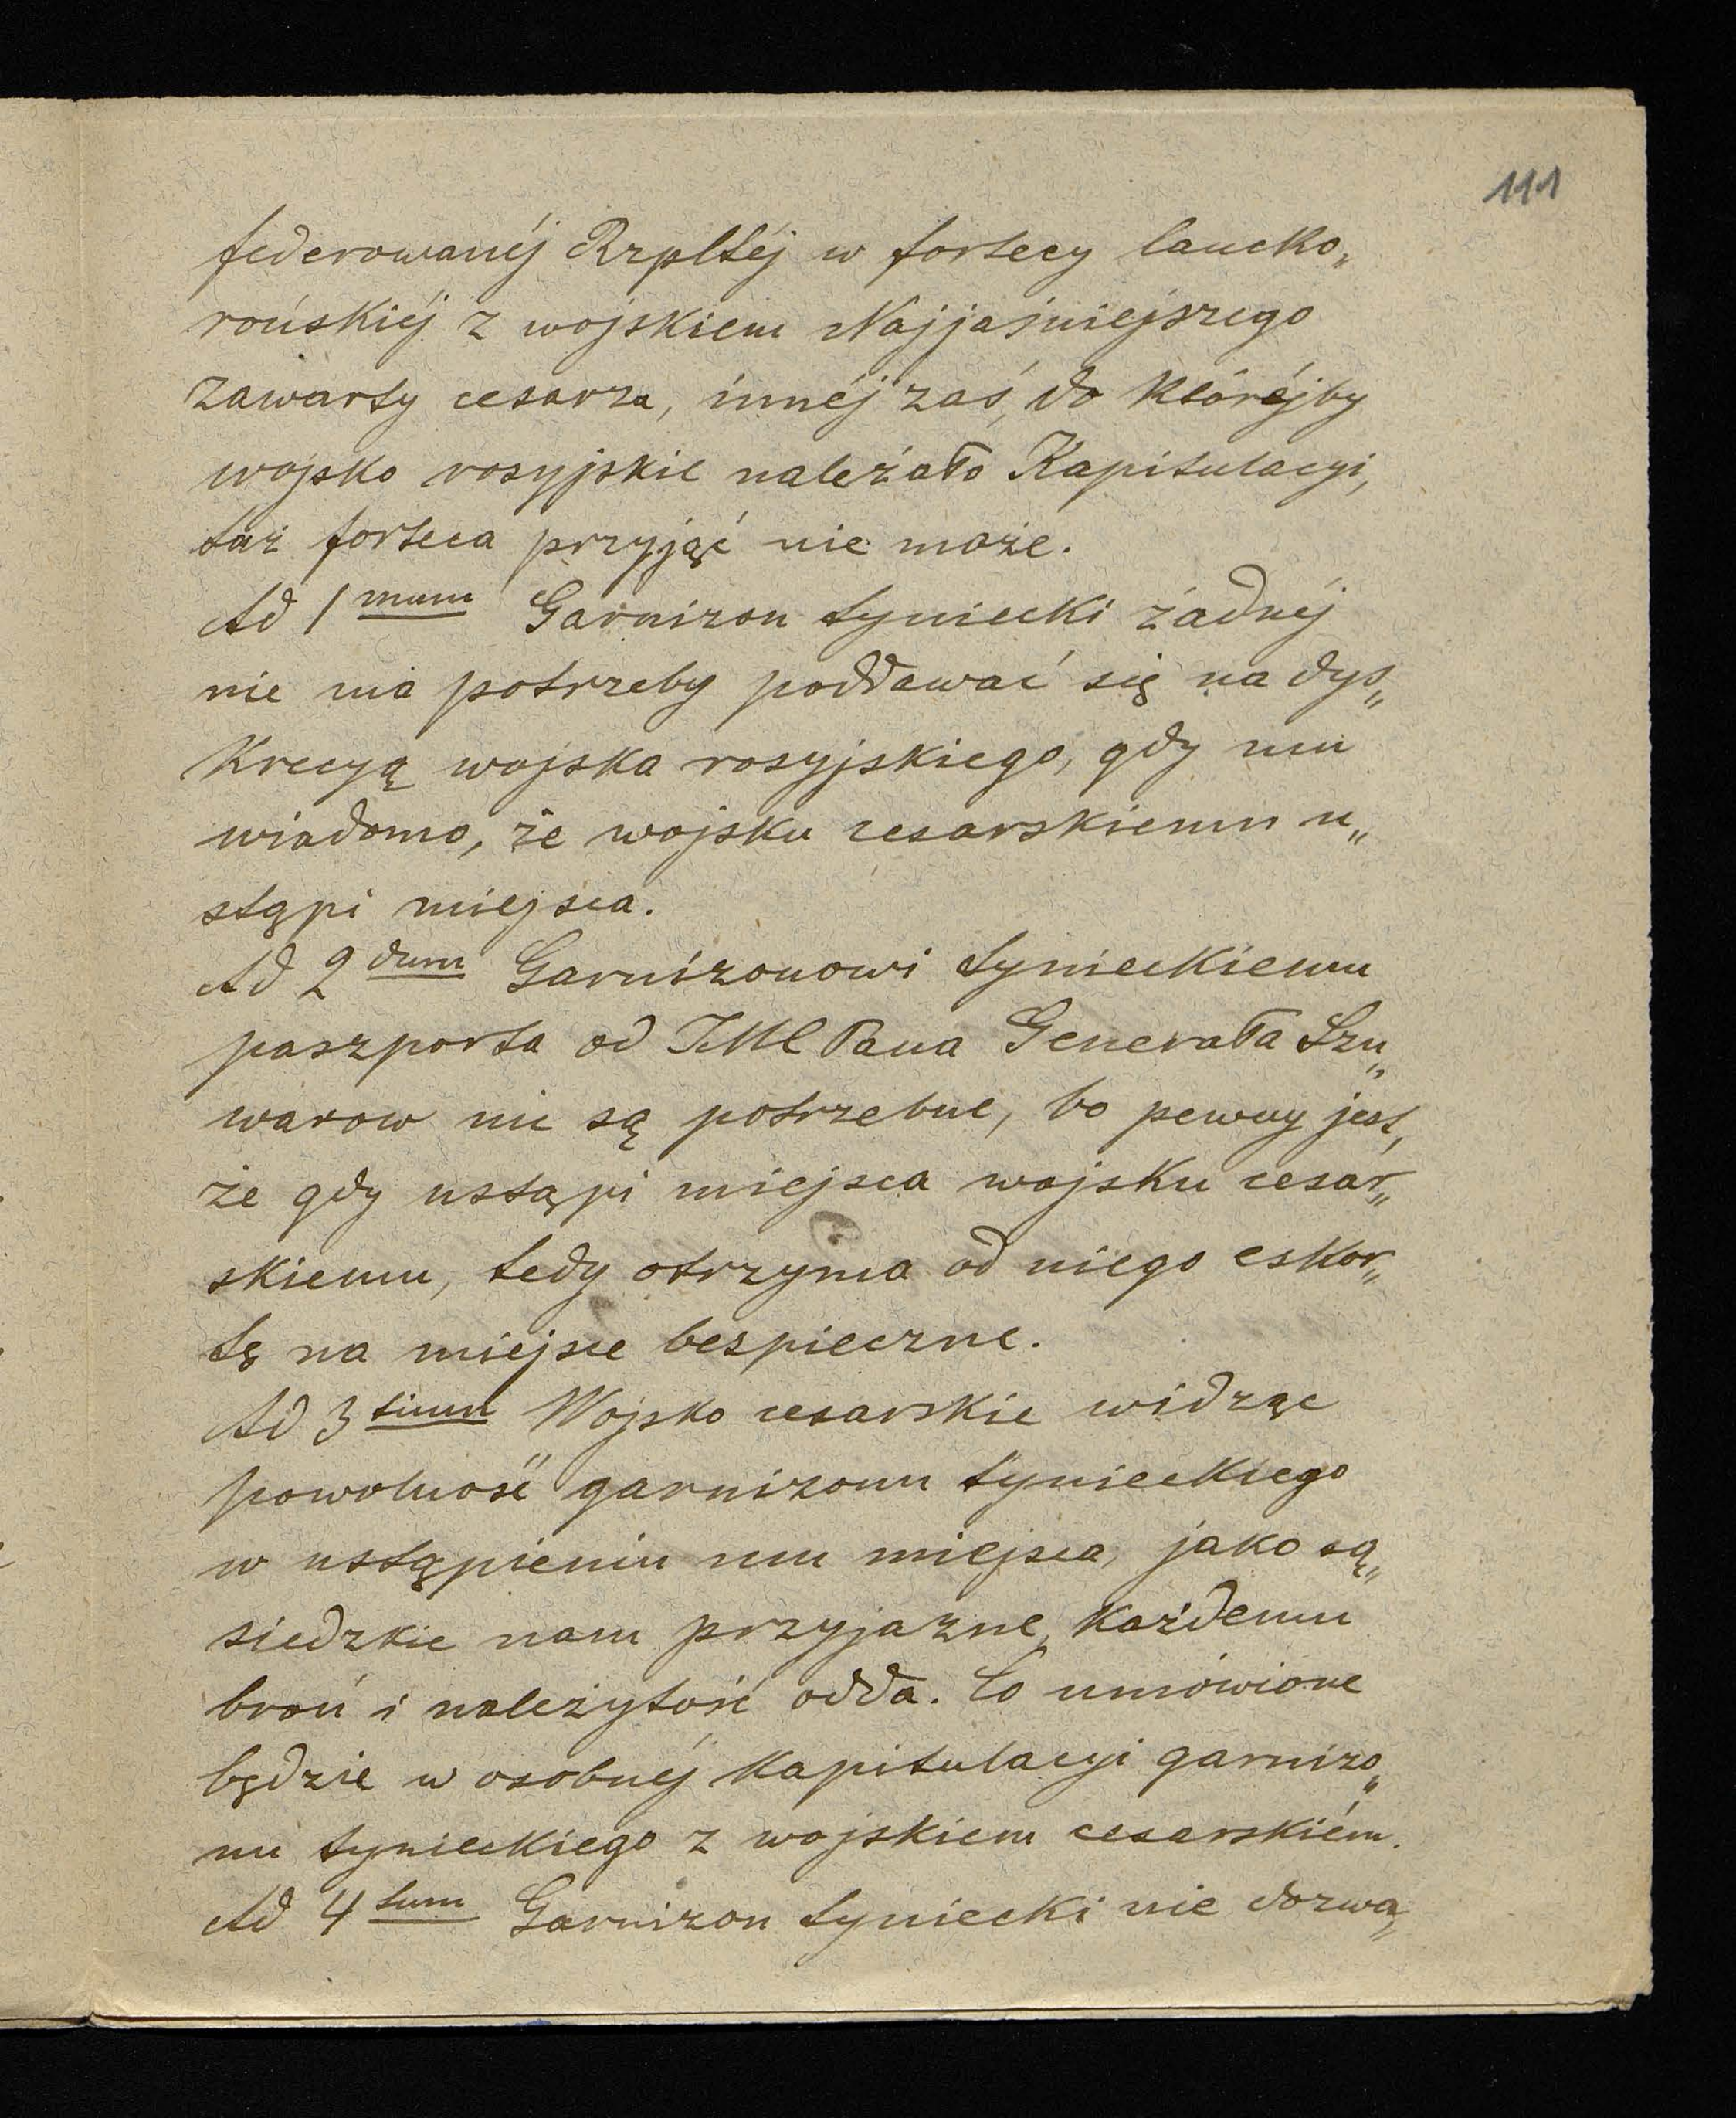 111
federowanéj Rzpltéj w fortecy lancko„
rońskiéj z wojskiem Najjaśniejszego
zawarty cesarza, innéj zaś, do któréjby
wojsko rosyjskie należało Kapitulacyi,
taż forteca przyjąć nie może.
Ad 1mum Garnizon tyniecki żadnéj
nie ma potrzeby poddawać się na dys„
krecyą wojska rosyjskiego, gdy mu
wiadomo, że wojsku cesarskiemu u„
stąpi miejsca.
Ad 2dum Garnizonowi tynieckiemu
paszporta od JMC Pana Generała Szu„
warow nie są potrzebne, bo pewny jest,
że gdy ustąpi miejsca wojsku cesar„
skiemu, tedy otrzyma od niego eskor„
tę na miejsce bespieczne.
Ad 3tium Wojsko cesarskie widząc
powolność garnizonu tynieckiego
w ustąpieniu mu miejsca, jako są„
siedzkie nam przyjazne, każdemu
broń i należytość odda. Co umówione
będzie w osobnéj kapitulacyi garnizo„
nu tynieckiego z wojskiem cesarskiém.
Ad 4tum Garnizon tyniecki nie dozwa„